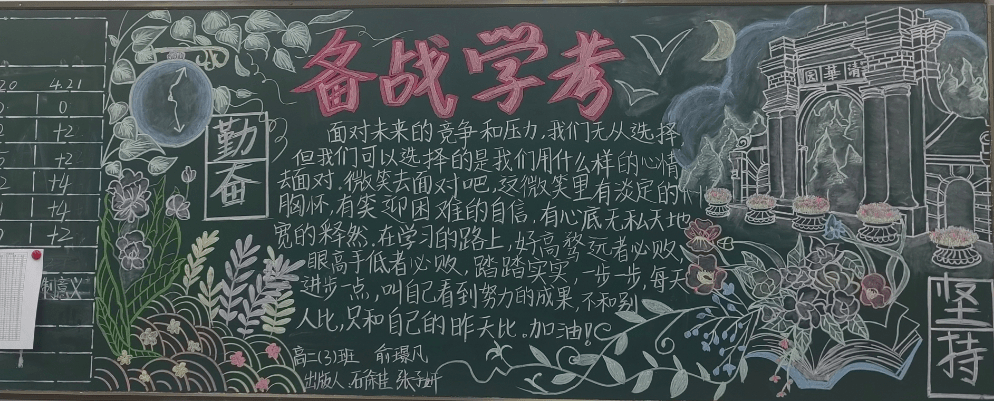 备战学考
面对未来的竞争和压力,我们无从选择,
但我们可以选择的是我们用什么样的心情
去面对.微笑去面对吧,这微笑里有淡定的
胸怀,有笑迎困难的自信.有心底无私天地
宽的释然.在学习的路上,好高骛远者必败,
眼高手低者必败,踏踏实实,一步一步,每天
进步一点,叫自己看到努力的成果,不和别
人比,只和自己的昨天比.加油!
高二(3)班
出版人
勤奋
坚持
園華清
4.21
0
+2
+2
+4
+4
+2